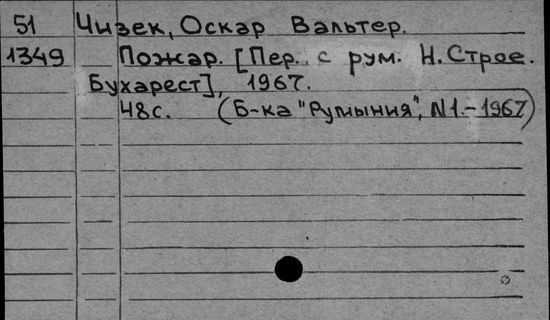 51 Чизек, Оскар Вальтер.
1349 Пожар. [Пер. с рум. Н. Строе.
Бухарест], 1967.
48с. (Б-ка "Румыния", N1.-1967)